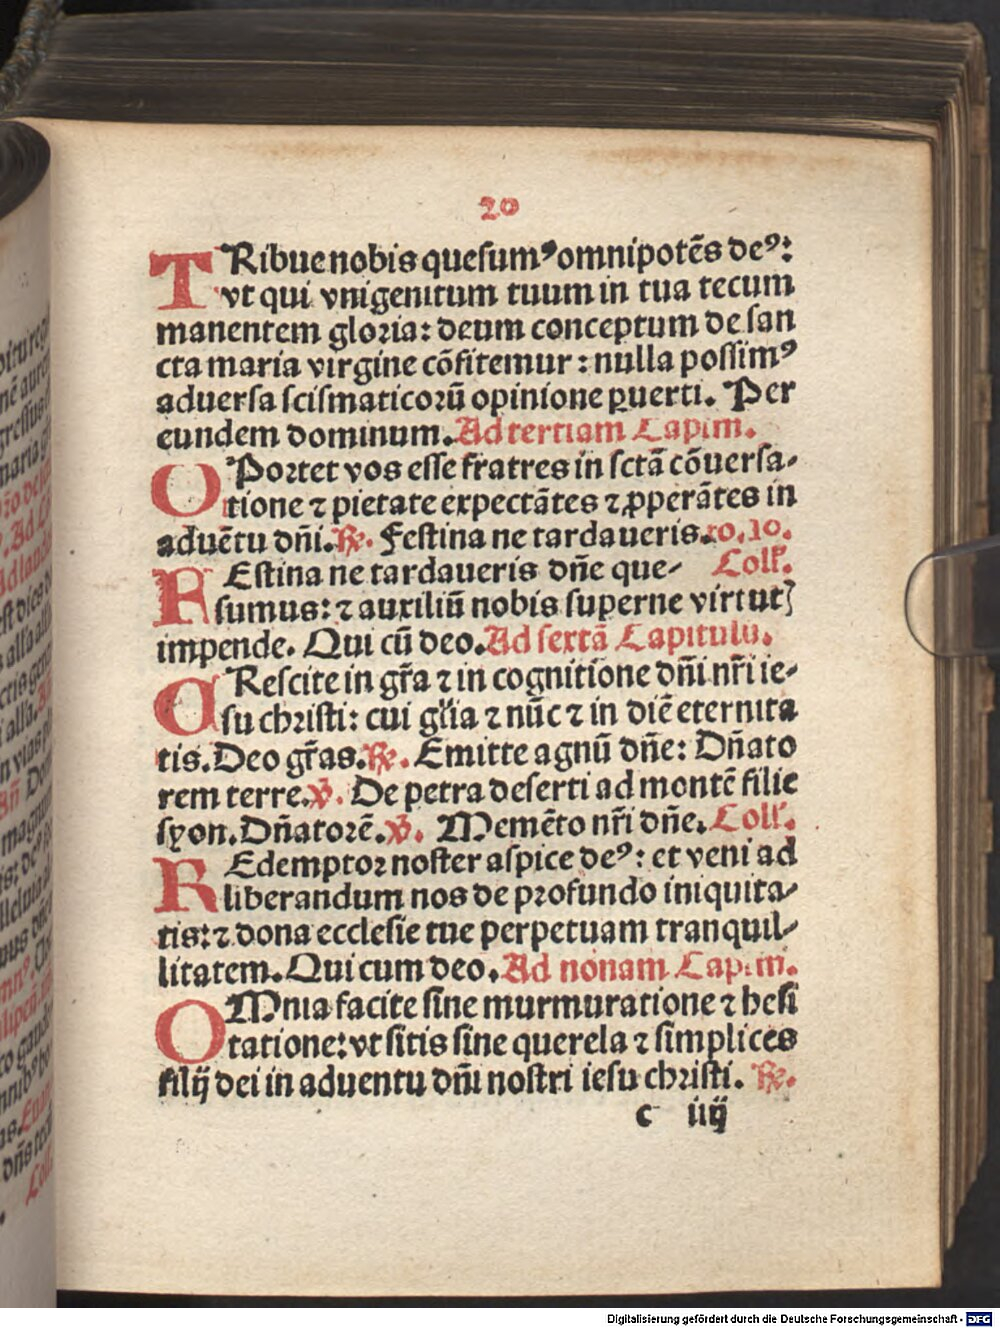 20
TRibue nobis quesumꝰ omnipotēs deꝰ:
vt qui vnigenitum tuum in tua tecum
manentem gloria: deum conceptum de san
cta maria virgine cōfitemur: nulla possimꝰ
aduersa scismaticorū opinione ꝑuerti. Per
eundem dominum. Ad tertiam Capim.
OPortet vos esse fratres in sctā cōuersa-
tione ⁊ pietate expectātes ⁊ ꝓperātes in
aduētu dn̄i. ℟. Festina ne tardaueris. ro. 10.
FEstina ne tardaueris dn̄e que- Coll'.
sumus: ⁊ auxiliū nobis superne virtutꝭ
impende. Qui cū deo. Ad sextā Capitulū.
CRescite in gr̄a ⁊ in cognitione dn̄i nr̄i ie-
su christi: cui gl'ia ⁊ nūc ⁊ in diē eternita
tis. Deo gr̄as. ℟. Emitte agnū dn̄e: Dn̄ato
rem terre. ℣. De petra deserti ad montē filie
syon. Dn̄atorē. ℣. Memēto nr̄i dn̄e. Coll'.
REdemptor noster aspice deꝰ: et veni ad
liberandum nos de profundo iniquita-
tis: ⁊ dona ecclesie tue perpetuam tranquil-
litatem. Qui cum deo. Ad nonam Capim.
OMnia facite sine murmuratione ⁊ hesi
tatione: vt sitis sine querela ⁊ simplices
filij dei in aduentu dn̄i nostri iesu christi. ℟.
c iiij
Digitalisierung gefördert durch die Deutsche Forschungsgemeinschaft - DFG